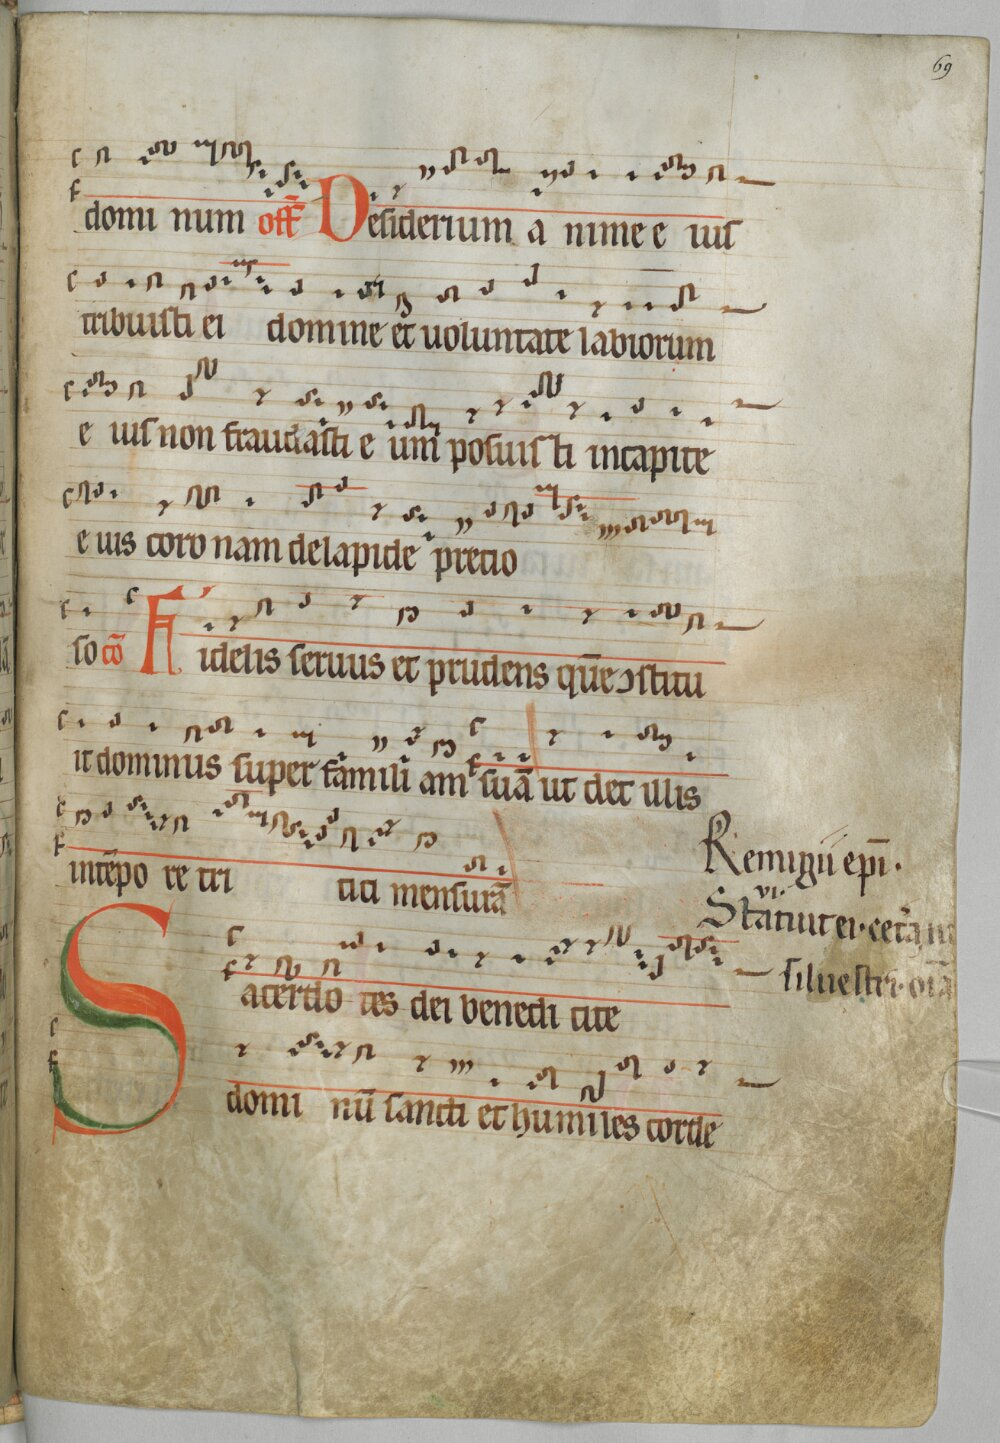 69
domi num off Desiderium a nime e ius
tribuisti ei domine et uoluntate labiorum
e ius non fraudasti e um posuisti in capite
e ius coro nam de lapide precio
so cō Fidelis seruus et prudens quē ↄstitu
it dominus super famili am suā ut det illis
in tēpo re tri tici mensurā
Remigii epī.
vi.
Statuit ei.
siluestri.
Sacerdo tes dei benedi cite
domi nū sancti et humiles corde